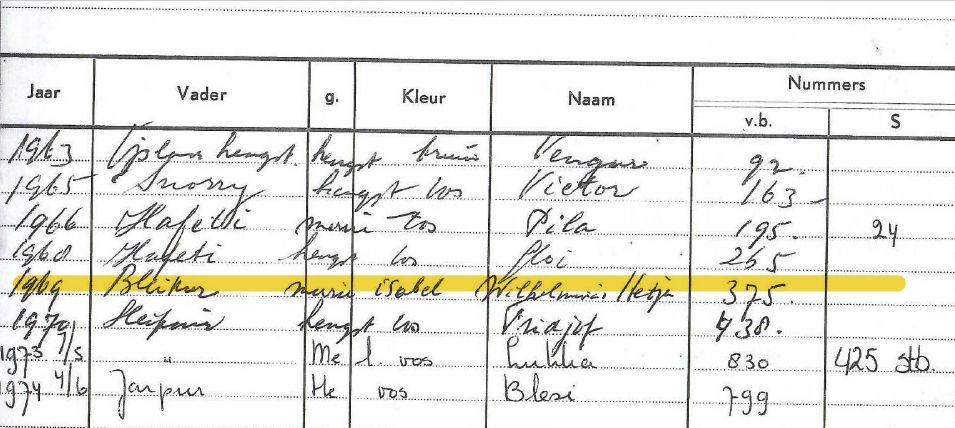 Nummers
Jaar Vader g. Kleur Naam v.b. S
1963 hengst. hengst bruin 92.
1965 Snorry hengst vos Victor 163
1966 Hafetti merrie vos Pila 195. 24
1968 Hafeti hengst vos 265
1969 Bleikur merrie isabel Wilhelmina Hetja 375.
1970 hengst vos 438.
1973 7/5 " Me l. vos 830 425 stb.
1974 4/6 Jarpur He vos Blesi 799